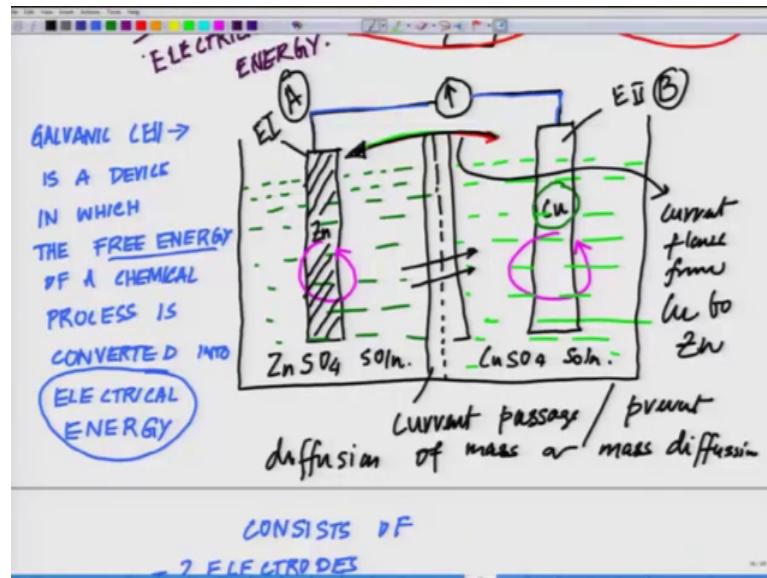 ELECTRIC
ENERGY.
GALVANIC CEll →
IS A DEVICE
IN WHICH
THE FREE ENERGY
OF A CHEMICAL
PROCESS IS
CONVERTED INTO
ELECTRICAL
ENERGY
A
EI
E II B
Zn
Cu
ZnSO4 Soln.
CuSO4 Soln.
current
flows
from
Cu to
Zn
current passage / prevent
diffusion of mass or mass diffusion
CONSISTS OF
- 2 ELECTRODES